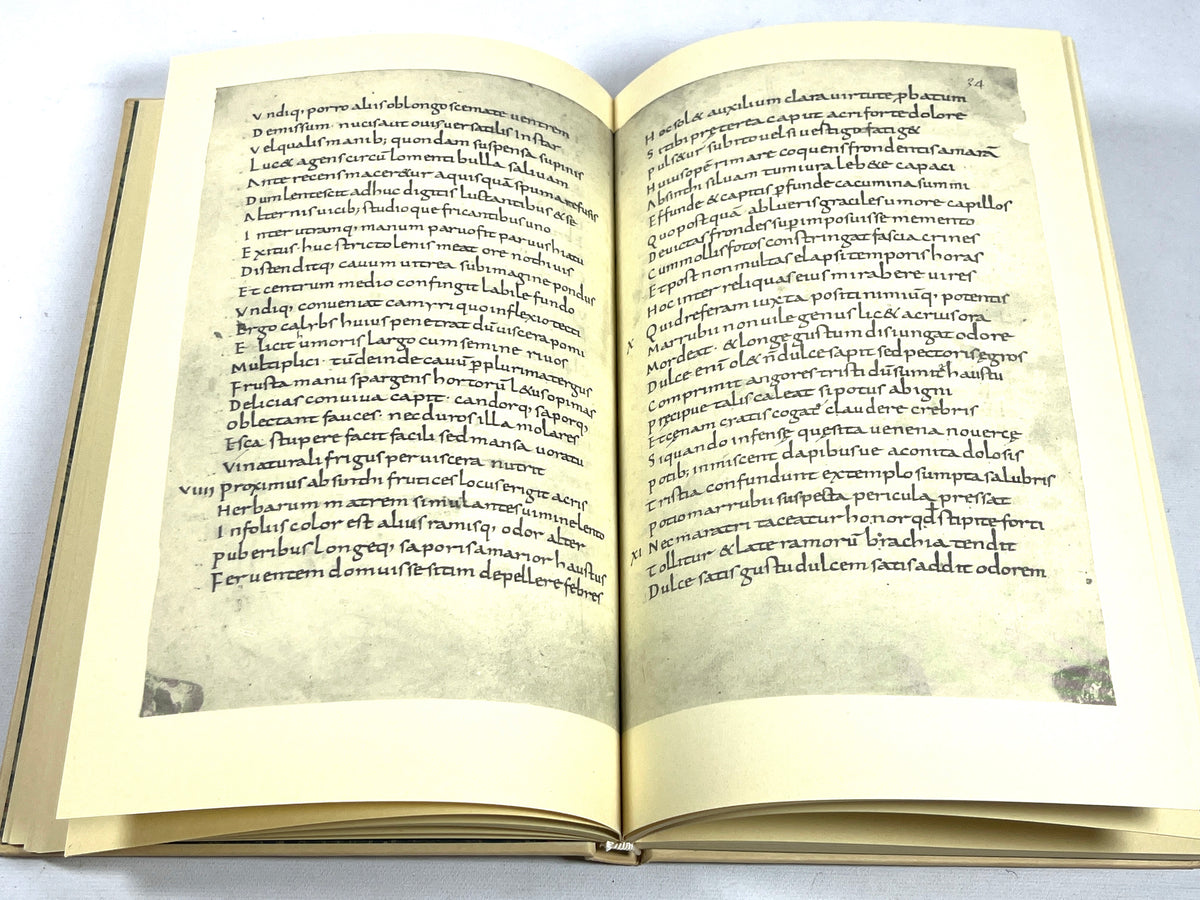 Vndiq; porro aliis oblongo scemate ventrem
Demissum nucis aut ouis uersatilis instar
Vel qualis manib; quondam suspensa supinis
Luc& agens circū lomenti bulla saliuam
Ante recens macer&ur aquis quā spuma refusis
Dum lentescit adhuc digitis luctantibus & se
Alternis uicib; studioque fricantibus uno
Inter utramq; manum paruo fit paruus hiatu
Exitus· huc stricto lenis meat ore nothi uis
Distenditq; cauum uitrea sub imagine pondus
Et centrum medio confingit labile fundo
Vndiq; conueniat camyri quo inflexio tecti
Ergo calybs huius penetrat dū uiscera pomi
Elicit umoris largo cum semine riuos
Multiplici· tū deinde cauū p plurima tergus
Frusta manu spargens hortorū l&us opimas
Delicias conuiua capit· candorq; saporq;
Oblectant fauces· nec duros illa molares
Esca stupere facit facili sed mansa uoratu
Vi naturali frigus per uiscera nutrit
VIIII Proximus absinthi frutices locus erigit acris
Herbarum matrem simulantes uimine lento
In foliis color est alius ramisq; odor alter
Puberibus longeq; saporis amarior haustus
Feruentem domuisse sitim depellere febres
34
Hoc sol& auxilium clara uirtute pbatum
Si tibi pręterea caput acri forte dolore
Puls&ur subito uel si uestigo fatig&
Huius opē rimare coquens frondentis amarā
Absinthi siluam tum iura leb&e capaci
Effunde & capitis pfunde cacumina summi
Quo postquā ablueris graciles umore capillos
Deuictas frondes sup imposuisse memento
Cum mollis fotos constringat fascia crines
Et post non multas elapsi temporis horas
Hoc inter reliquas eius mirabere uires
Quid referam iuxta positi nimiūq; potentis
X Marrubii non uile genus lic& acrius ora
Mordeat· & longe gustum disiungat odore
Dulce enī ol& n̄ dulce sapit sed pectoris ęgros
Comprimit angores tristi dū sumit haustu
Pręcipue talis caleat si potus ab igni
Et cenam cratis cogat claudere crebris
Si quando infensę quęsita uenena nouercę
Potib; inmiscent dapibusue aconita dolosis
Tristia confundunt extemplo sumpta salubris
Potio marrubii suspecta pericula pressat
XI Nec maratri taceatur honor qđ stipite forti
Tollitur & late ramorū brachia tendit
Dulce satis gustu dulcem satis addit odorem